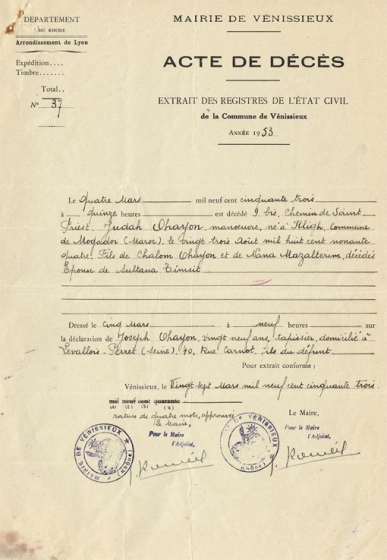 DÉPARTEMENT
DU RHONE
Arrondissement de Lyon
Expédition....
Timbre......
Total..
N° 37
MAIRIE DE VÉNISSIEUX
ACTE DE DÉCÈS
EXTRAIT DES REGISTRES DE L'ÉTAT CIVIL
de la Commune de Vénissieux
ANNÉE 1953
Le Quatre Mars mil neuf cent cinquante trois
à quinze heures est décédé 9 bis, Chemin de Saint
Priest, Judah Ohayon, manoeuvre, né à Illigh, Commune
de Mogador (Maroc), le vingt trois Août mil huit cent nonante
quatre. Fils de Chalom Ohayon et de Nana Mazalterim, décédés
Epouse de Sultana Timsit
Dressé le cinq Mars à neuf heures sur
la déclaration de Joseph Ohayon, vingt neuf ans, tapissier, domicilié à
Levallois-Perret (Seine), 70, Rue Carnot, fils du défunt.
Pour extrait conforme :
Vénissieux, le Vingt sept Mars mil neuf cent cinquante trois
mil neuf cent quarante
(1) (2) (3) (4)
rature de quatre mots, approuvée
Le Maire,
Le Maire,
Pour le Maire
l'Adjoint,
Pour le Maire
l'Adjoint,
MAIRIE DE VÉNISSIEUX (RHÔNE)
MAIRIE DE VÉNISSIEUX (RHÔNE)